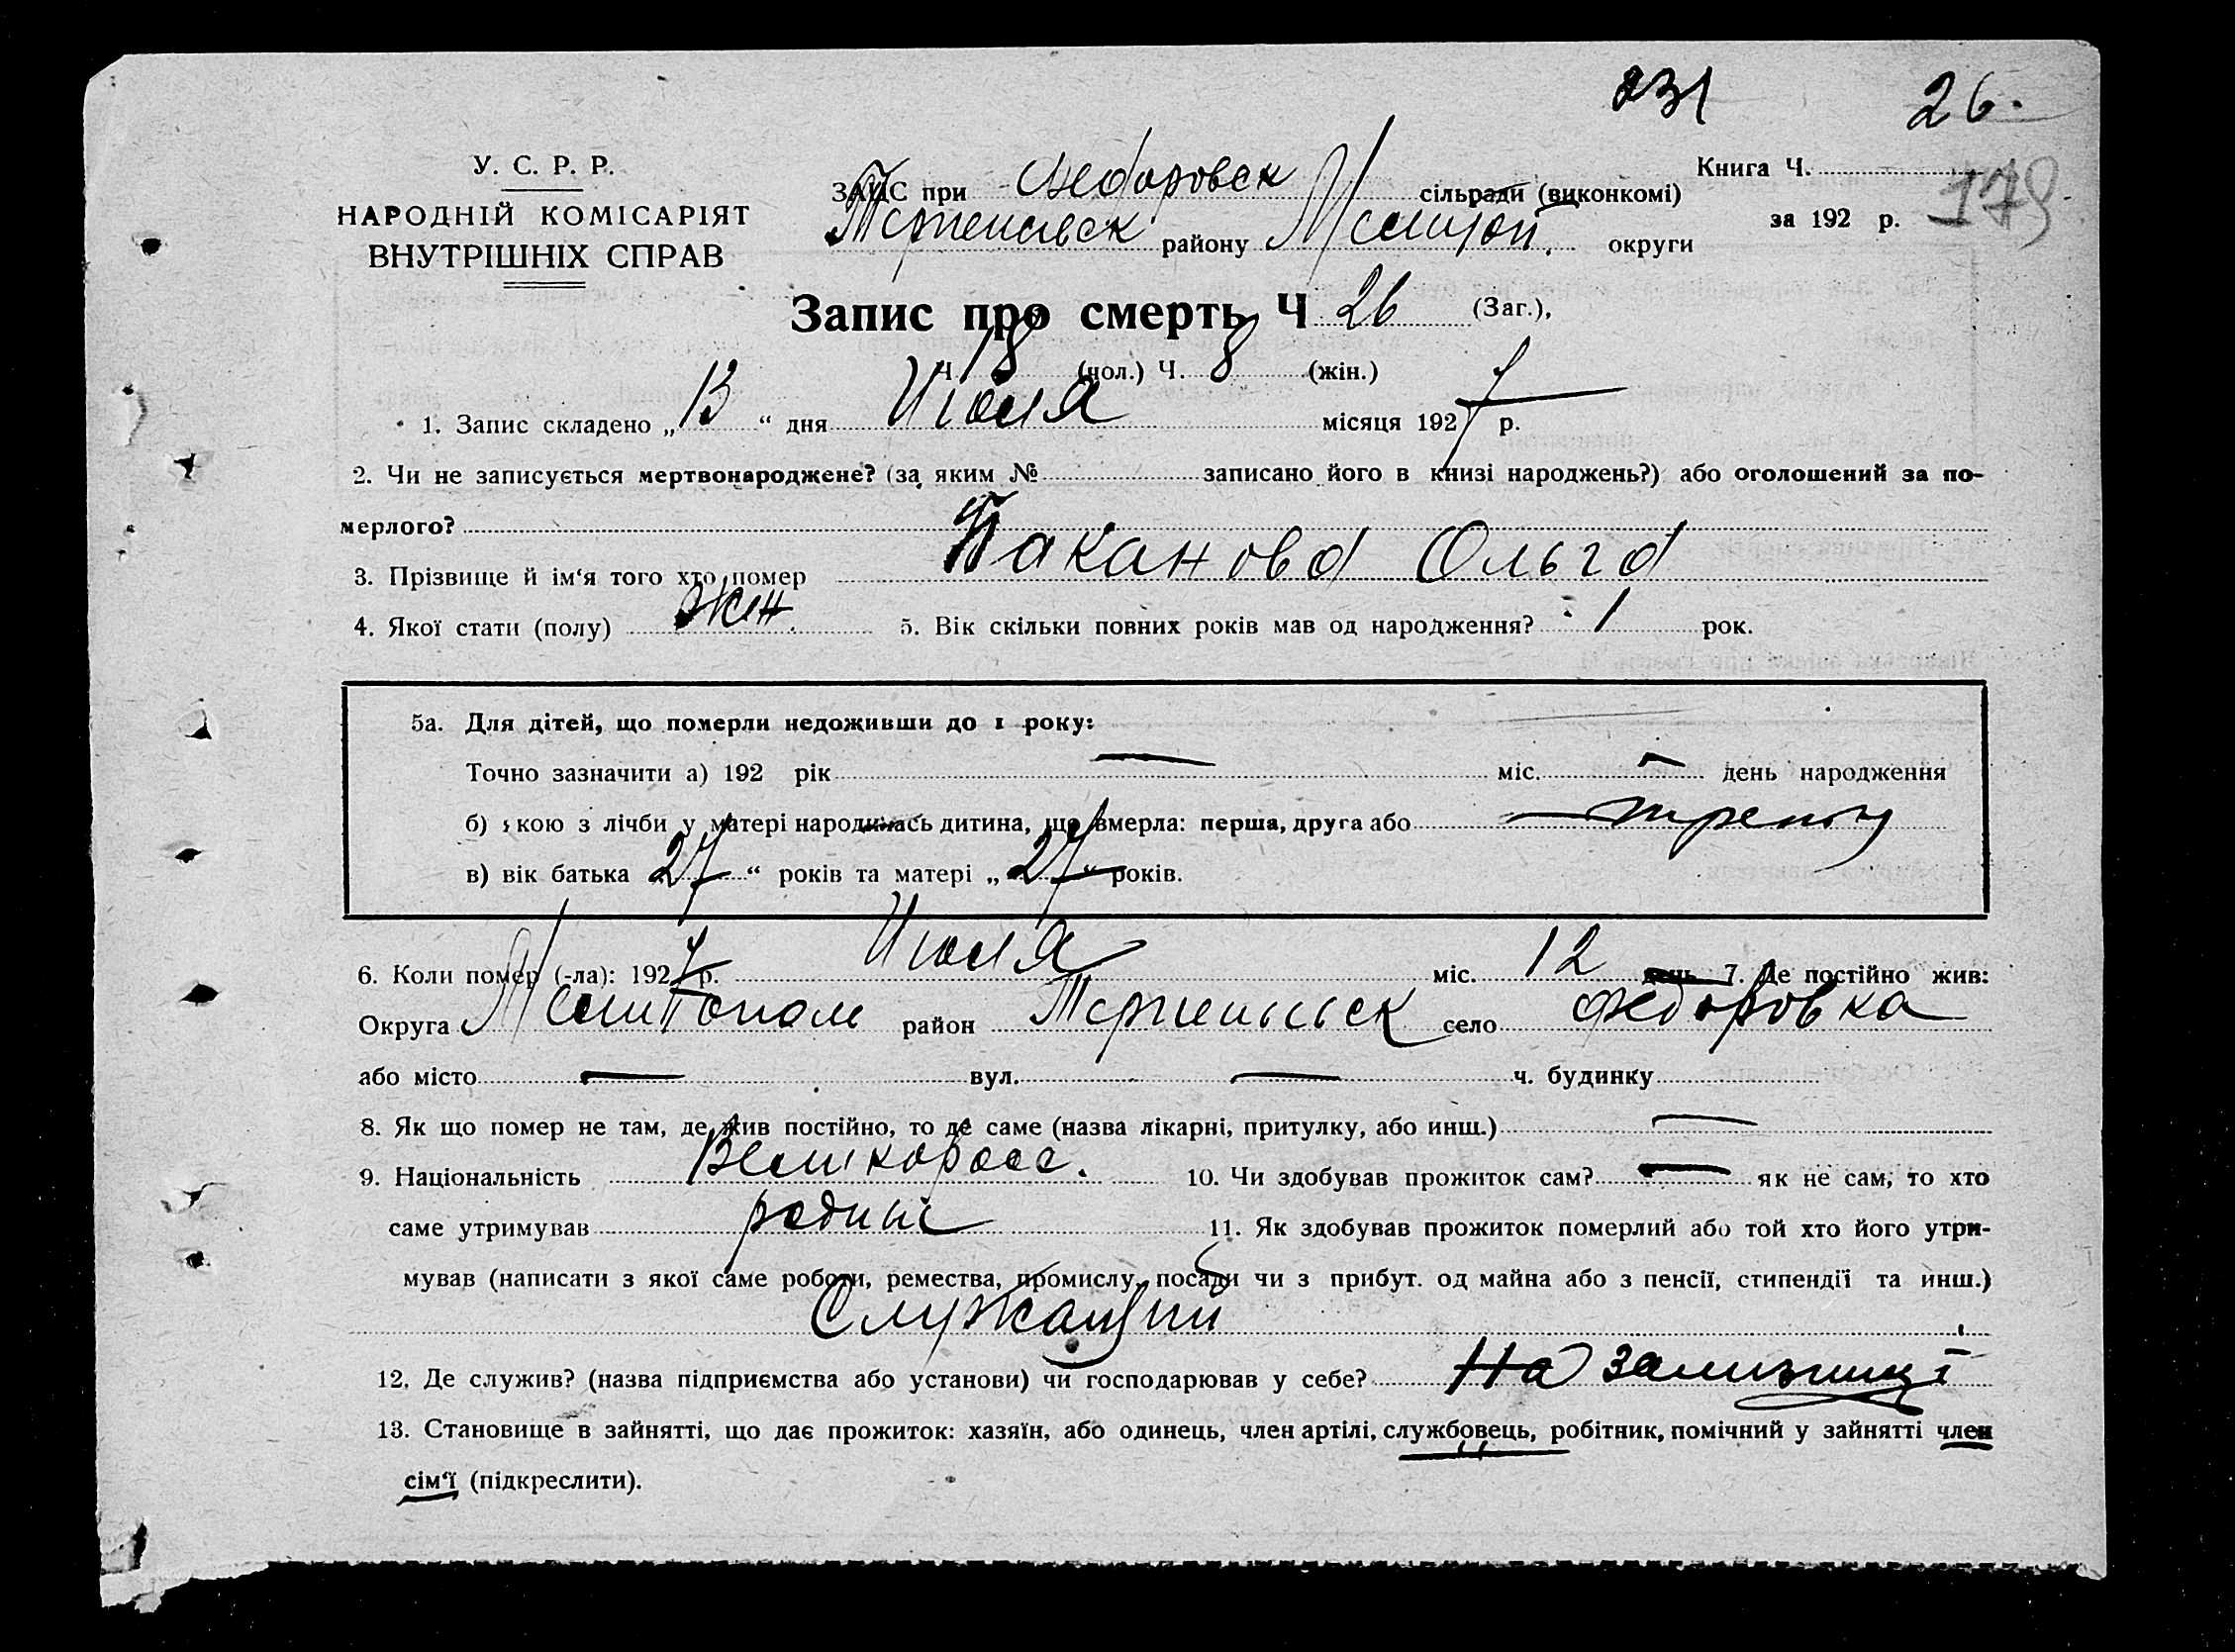 231 26.
У. С. Р. Р.
НАРОДНІЙ КОМІСАРІЯТ
ВНУТРІШНІХ СПРАВ
Книга Ч.
за 192 р. 179
ЗАГС при Федоровск сільради (виконкомі)
Терпеньевск району Мелитоп. округи
Запис про смерть Ч 26 (Заг.),
Ч. 18 (чол.) Ч. 8 (жін.)
1. Запис складено „ 13 “ дня Июля місяця 1927 р.
2. Чи не записується мертвонароджене? (за яким № записано його в книзі народжень?) або оголошений за по-
мерлого?
3. Прізвище й ім‘я того хто помер Баканова Ольга
4. Якої стати (полу) жен. 5. Вік скільки повних років мав од народження? 1 рок.
5а. Для дітей, що померли недоживши до 1 року:
Точно зазначити а) 192 рік — міс. — день народження
б) якою з лічби у матері народилась дитина, що вмерла: перша, друга або
в) вік батька „ 27 “ років та матері „ 27 “ років.
6. Коли помер (-ла): 1927 р. Июля міс. 12 день 7. Де постійно жив:
Округа Мелитополь район село Федоровка
або місто — вул. — ч. будинку
8. Як що помер не там, де жив постійно, то де саме (назва лікарні, притулку, або инш.) —
9. Національність Великоросс. 10. Чи здобував прожиток сам? — як не сам, то хто
саме утримував родині 11. Як здобував прожиток померлий або той хто його утри-
мував (написати з якої саме роботи, ремества, промислу, посади чи з прибут. од майна або з пенсії, стипендії та инш.)
Служащий
12. Де служив? (назва підприємства або установи) чи господарював у себе? На зализниці
13. Становище в зайнятті, що дає прожиток: хазяїн, або одинець, член артілі, службовець, робітник, помічний у зайнятті член
сім‘ї (підкреслити).